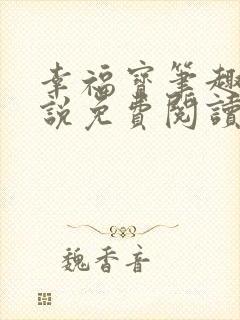 幸福寶筆趣
說免費閱讀
魏香音